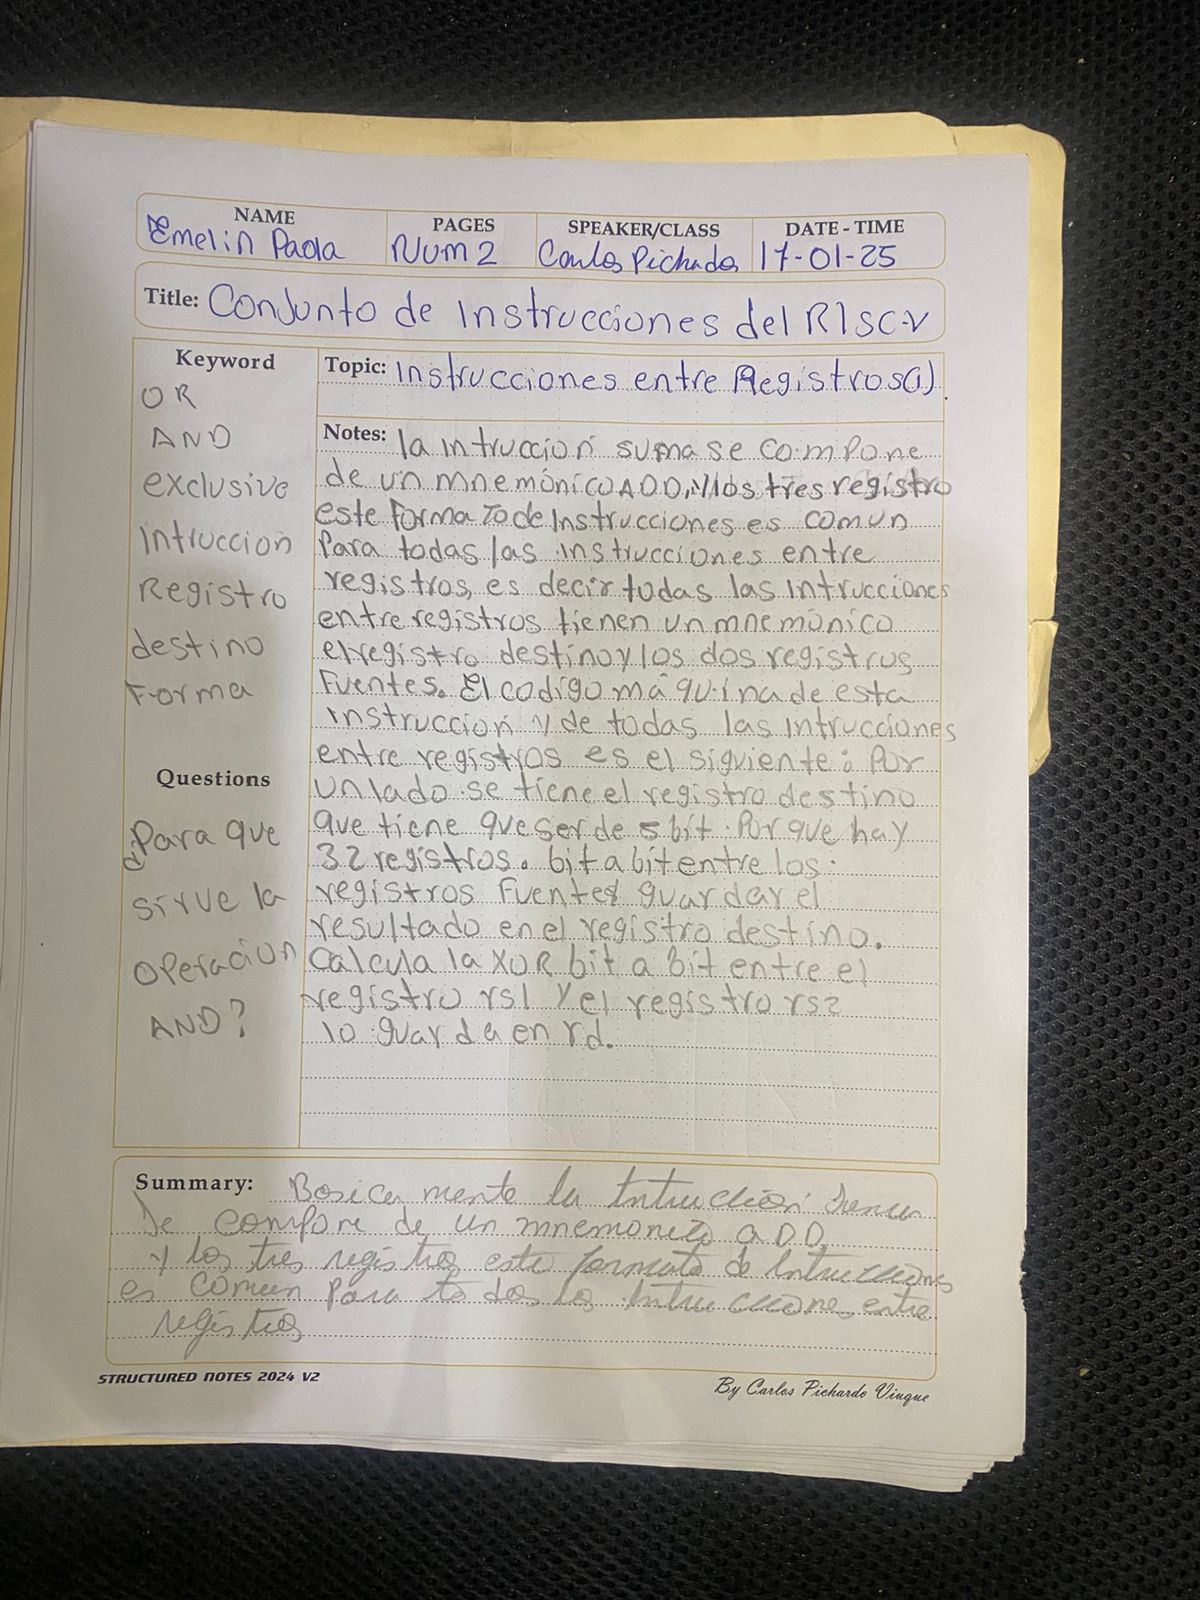 NAME
Emelin Paola
PAGES
Num 2
SPEAKER/CLASS
Carlos Pichardo
DATE - TIME
17-01-25
Title: Conjunto de Instrucciones del RISC-V
Keyword
OR
AND
exclusivo
Intruccion
Registro
destino
Forma
Questions
¿Para que
sirve la
operacion
AND?
Topic: Instrucciones entre Registros(1)
Notes: la intruccion suma se compone
de un mnemónico ADD, y los tres registro
este formato de Instrucciones es comun
para todas las instrucciones entre
registros, es decir todas las Intrucciones
entre registros tienen un mnemónico
el registro destino y los dos registros
Fuentes. El codigo máquina de esta
instruccion y de todas las Intrucciones
entre registros es el siguiente: Por
un lado se tiene el registro destino
que tiene que ser de 5 bit. Por que hay
32 registros. bit a bit entre los
registros Fuentes guardar el
resultado en el registro destino.
Calcula la XOR bit a bit entre el
registro rs1 y el registro rs2
lo guarda en rd.
Summary: Basicamente la Intruccion suma
se compone de un mnemonico ADD
y los tres registros este formato de Intrucciones
es comun para todos los Intrucciones entre
registros
STRUCTURED NOTES 2024 V2
By Carlos Pichardo Viuque